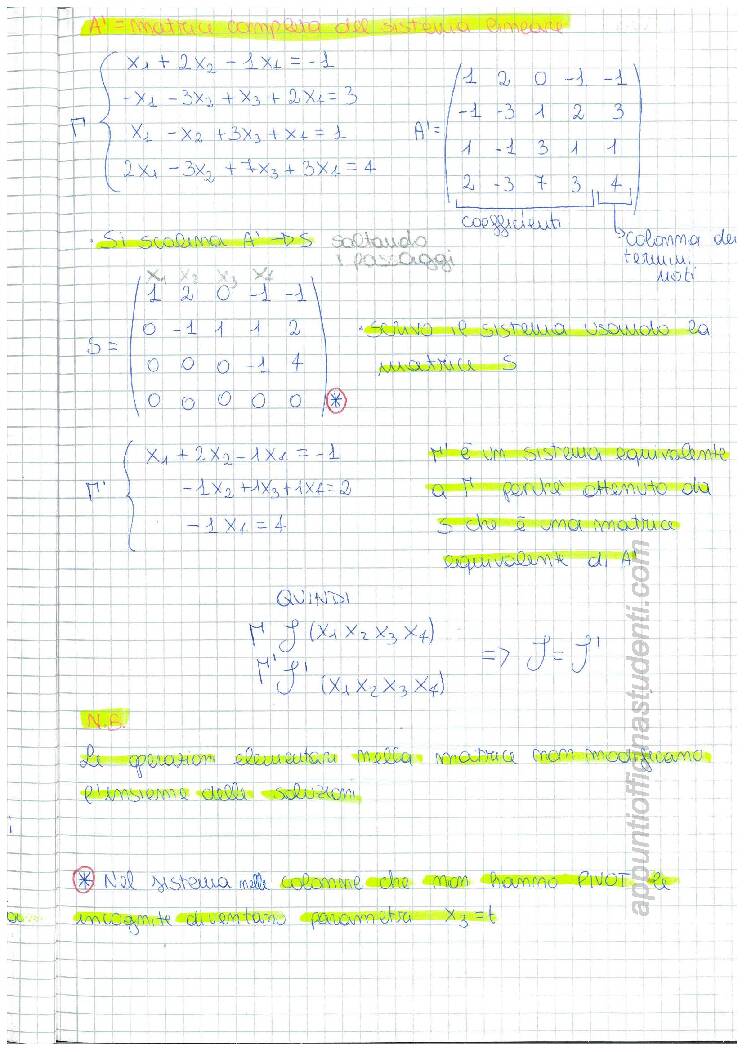 A' = matrice completa del sistema lineare
Γ { x₁ + 2x₂ - 1x₄ = -1
-x₁ - 3x₂ + x₃ + 2x₄ = 3
x₁ - x₂ + 3x₃ + x₄ = 1
2x₁ - 3x₂ + 7x₃ + 3x₄ = 4
A' =
1 2 0 -1 -1
-1 -3 1 2 3
1 -1 3 1 1
2 -3 7 3 4
coefficienti
colonna dei
termini
noti
· Si scalina A' → S saltando
i passaggi
x₁ x₂ x₃ x₄
S =
1 2 0 -1 -1
0 -1 1 1 2
0 0 0 -1 4
0 0 0 0 0 *
· scrivo il sistema usando la
matrice S
Γ' { x₁ + 2x₂ - 1x₄ = -1
-1x₂ + 1x₃ + 1x₄ = 2
-1x₄ = 4
Γ' è un sistema equivalente
a Γ perché ottenuto da
S che è una matrice
equivalente di A'
QUINDI
Γ S (x₁ x₂ x₃ x₄)
Γ' S' (x₁ x₂ x₃ x₄)
=> S = S'
N.B.
Le operazioni elementari nella matrice non modificano
l'insieme delle soluzioni
* Nel sistema nelle colonne che non hanno PIVOT le
incognite diventano parametri x₃ = t
appuntiofficinastudenti.com